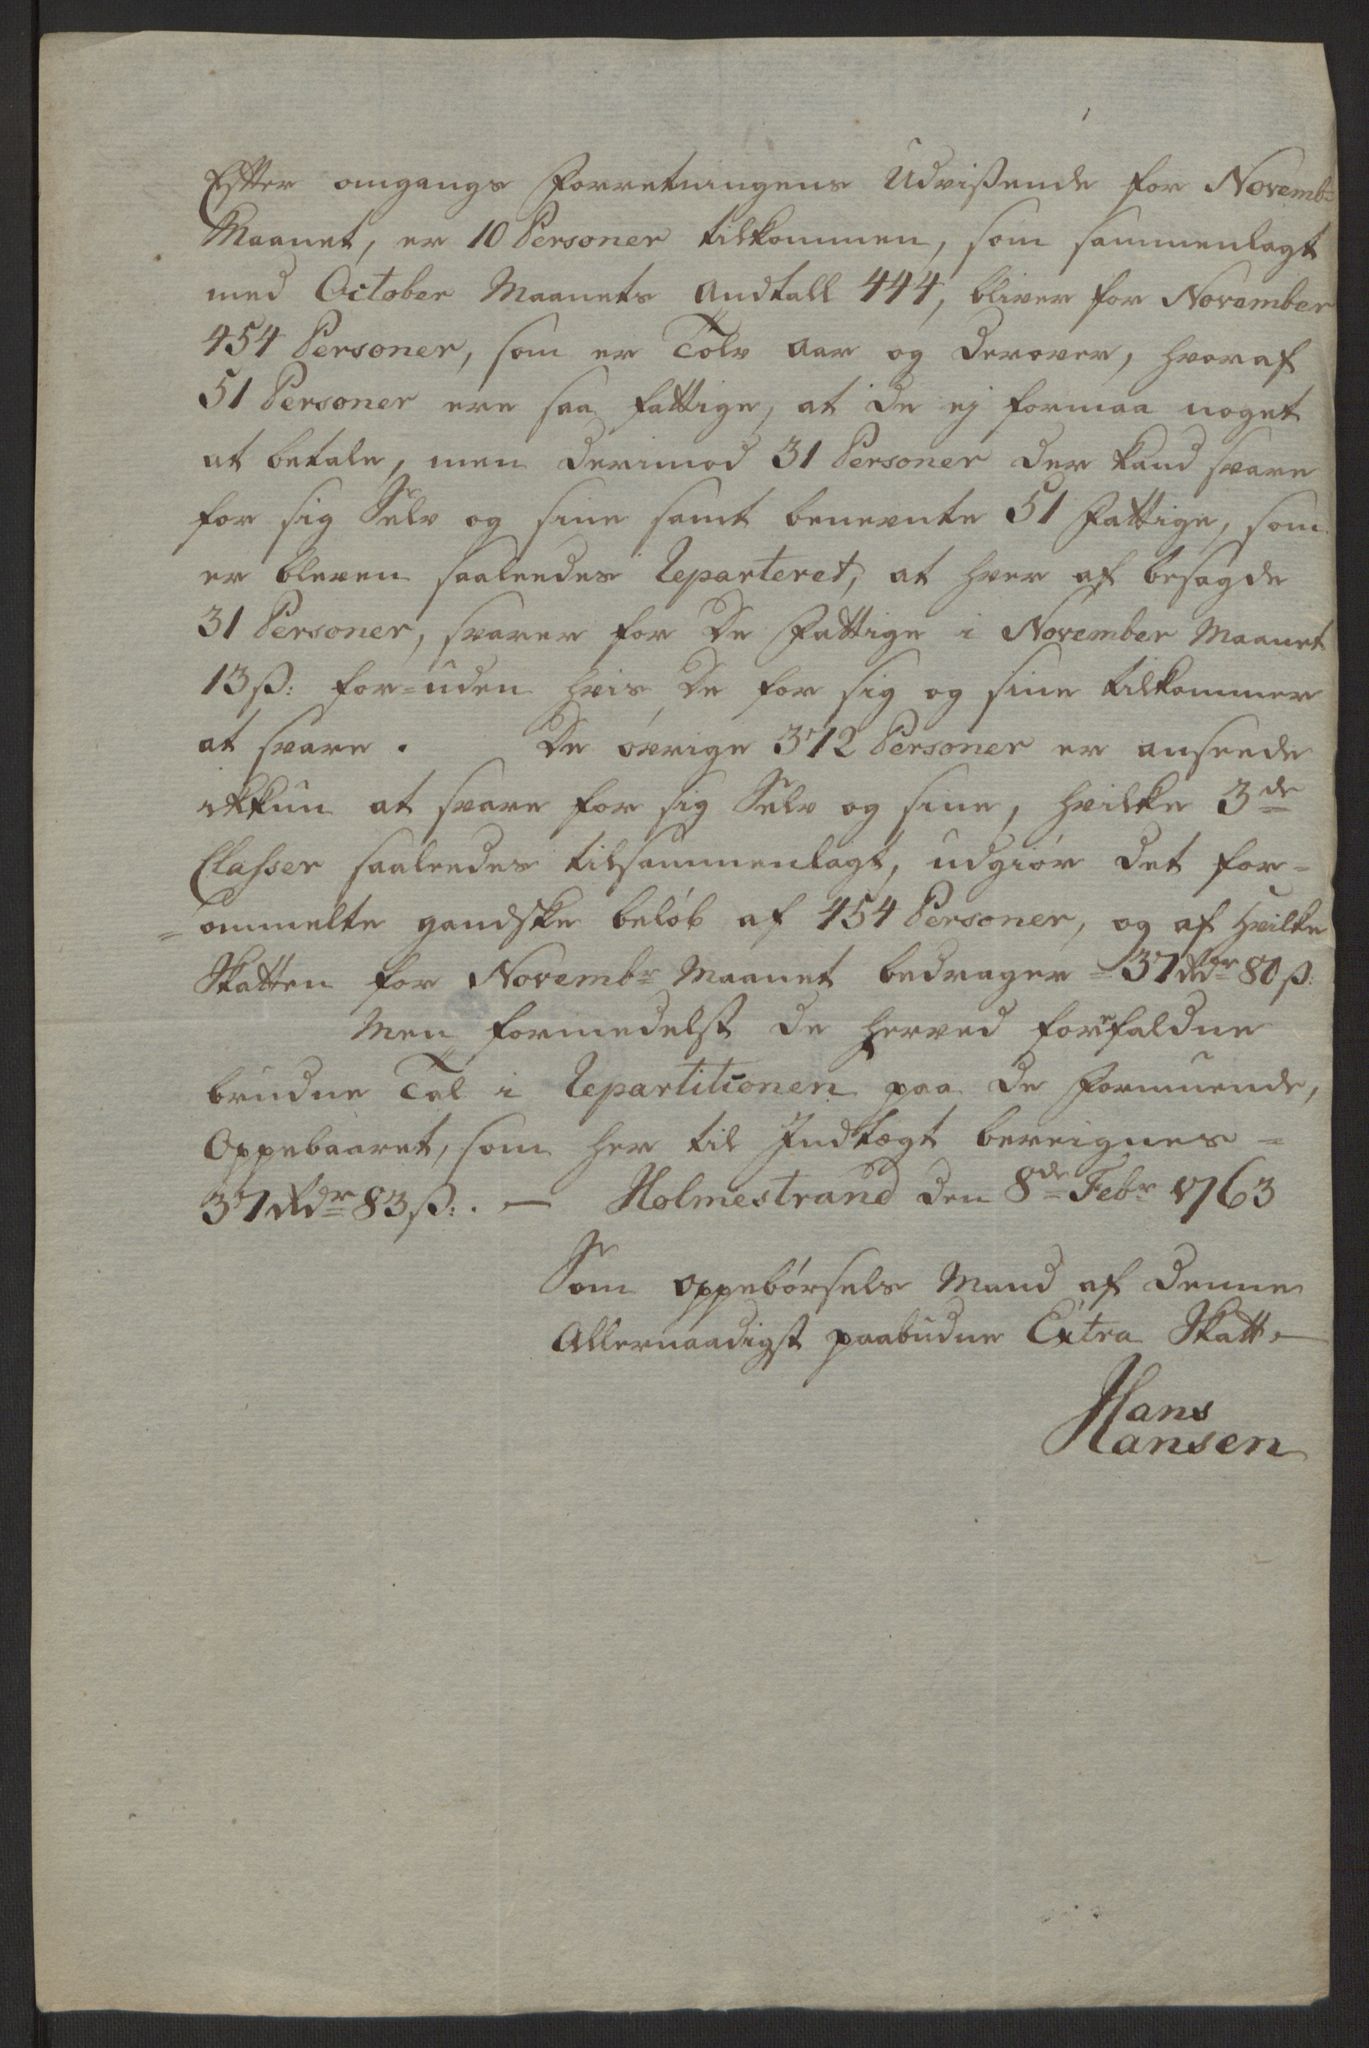 Efter omgangs Forretningens Udvißende for Novembr
Maanet, er 10 Personer tilkommen, som sammenlagt
med October Maanets Andtall 444, bliver for November
454 Personer, som er Tolv Aar og derover, hvoraf
51 Personer ere saa fattige, at de ej formaa noget
at betale, men derimod 31 Personer der kand svare
for sig Selv og sine samt benevnte 51 Fattige, som
er bleven saaleedes Reparteret, at hver af besagde
31 Personer, svarer for de Fattige i November Maanet
13 ß: for-uden hvis de for sig og sine tilkommer
at svare. De øvrige 372 Personer er anseede
ikkun at svare for sig Selv og sine, hvilke 3de
Classer saaleedes tilsammenlagt, udgiør det for=
=ommelte gandske beløb af 454 Personer, og af hvilke
Skatten for Novembr Maanet bedrager = 37 Rdr 80 ß:
Men formedelst de herved forefaldne
brudne Tal i Repartitionen paa de Formuende,
Oppebaaret, som her til Indtægt bereignes =
37 Rdr 83 ß: . — Holmestrand den 8de Febr 1763
Som oppebørsels Mand af denne
Allernaadigst paabudne Extra Skatt —
Hans
Hansen